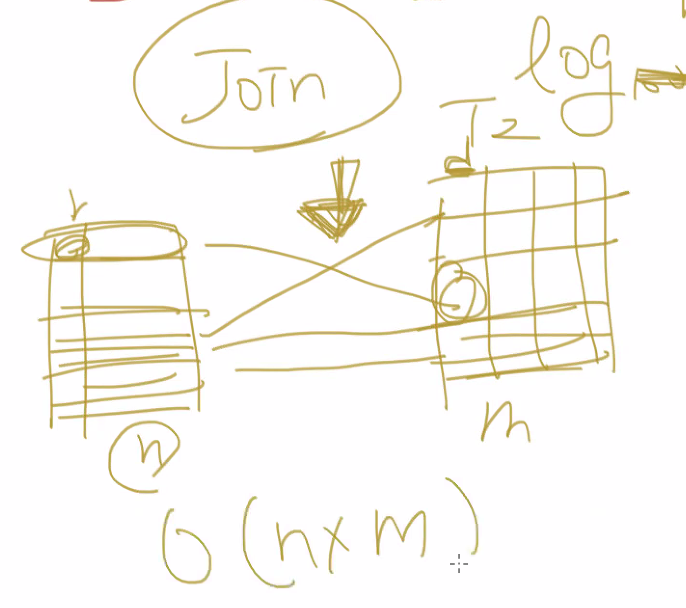 JoIn
log
T2
n
m
O(n×m)